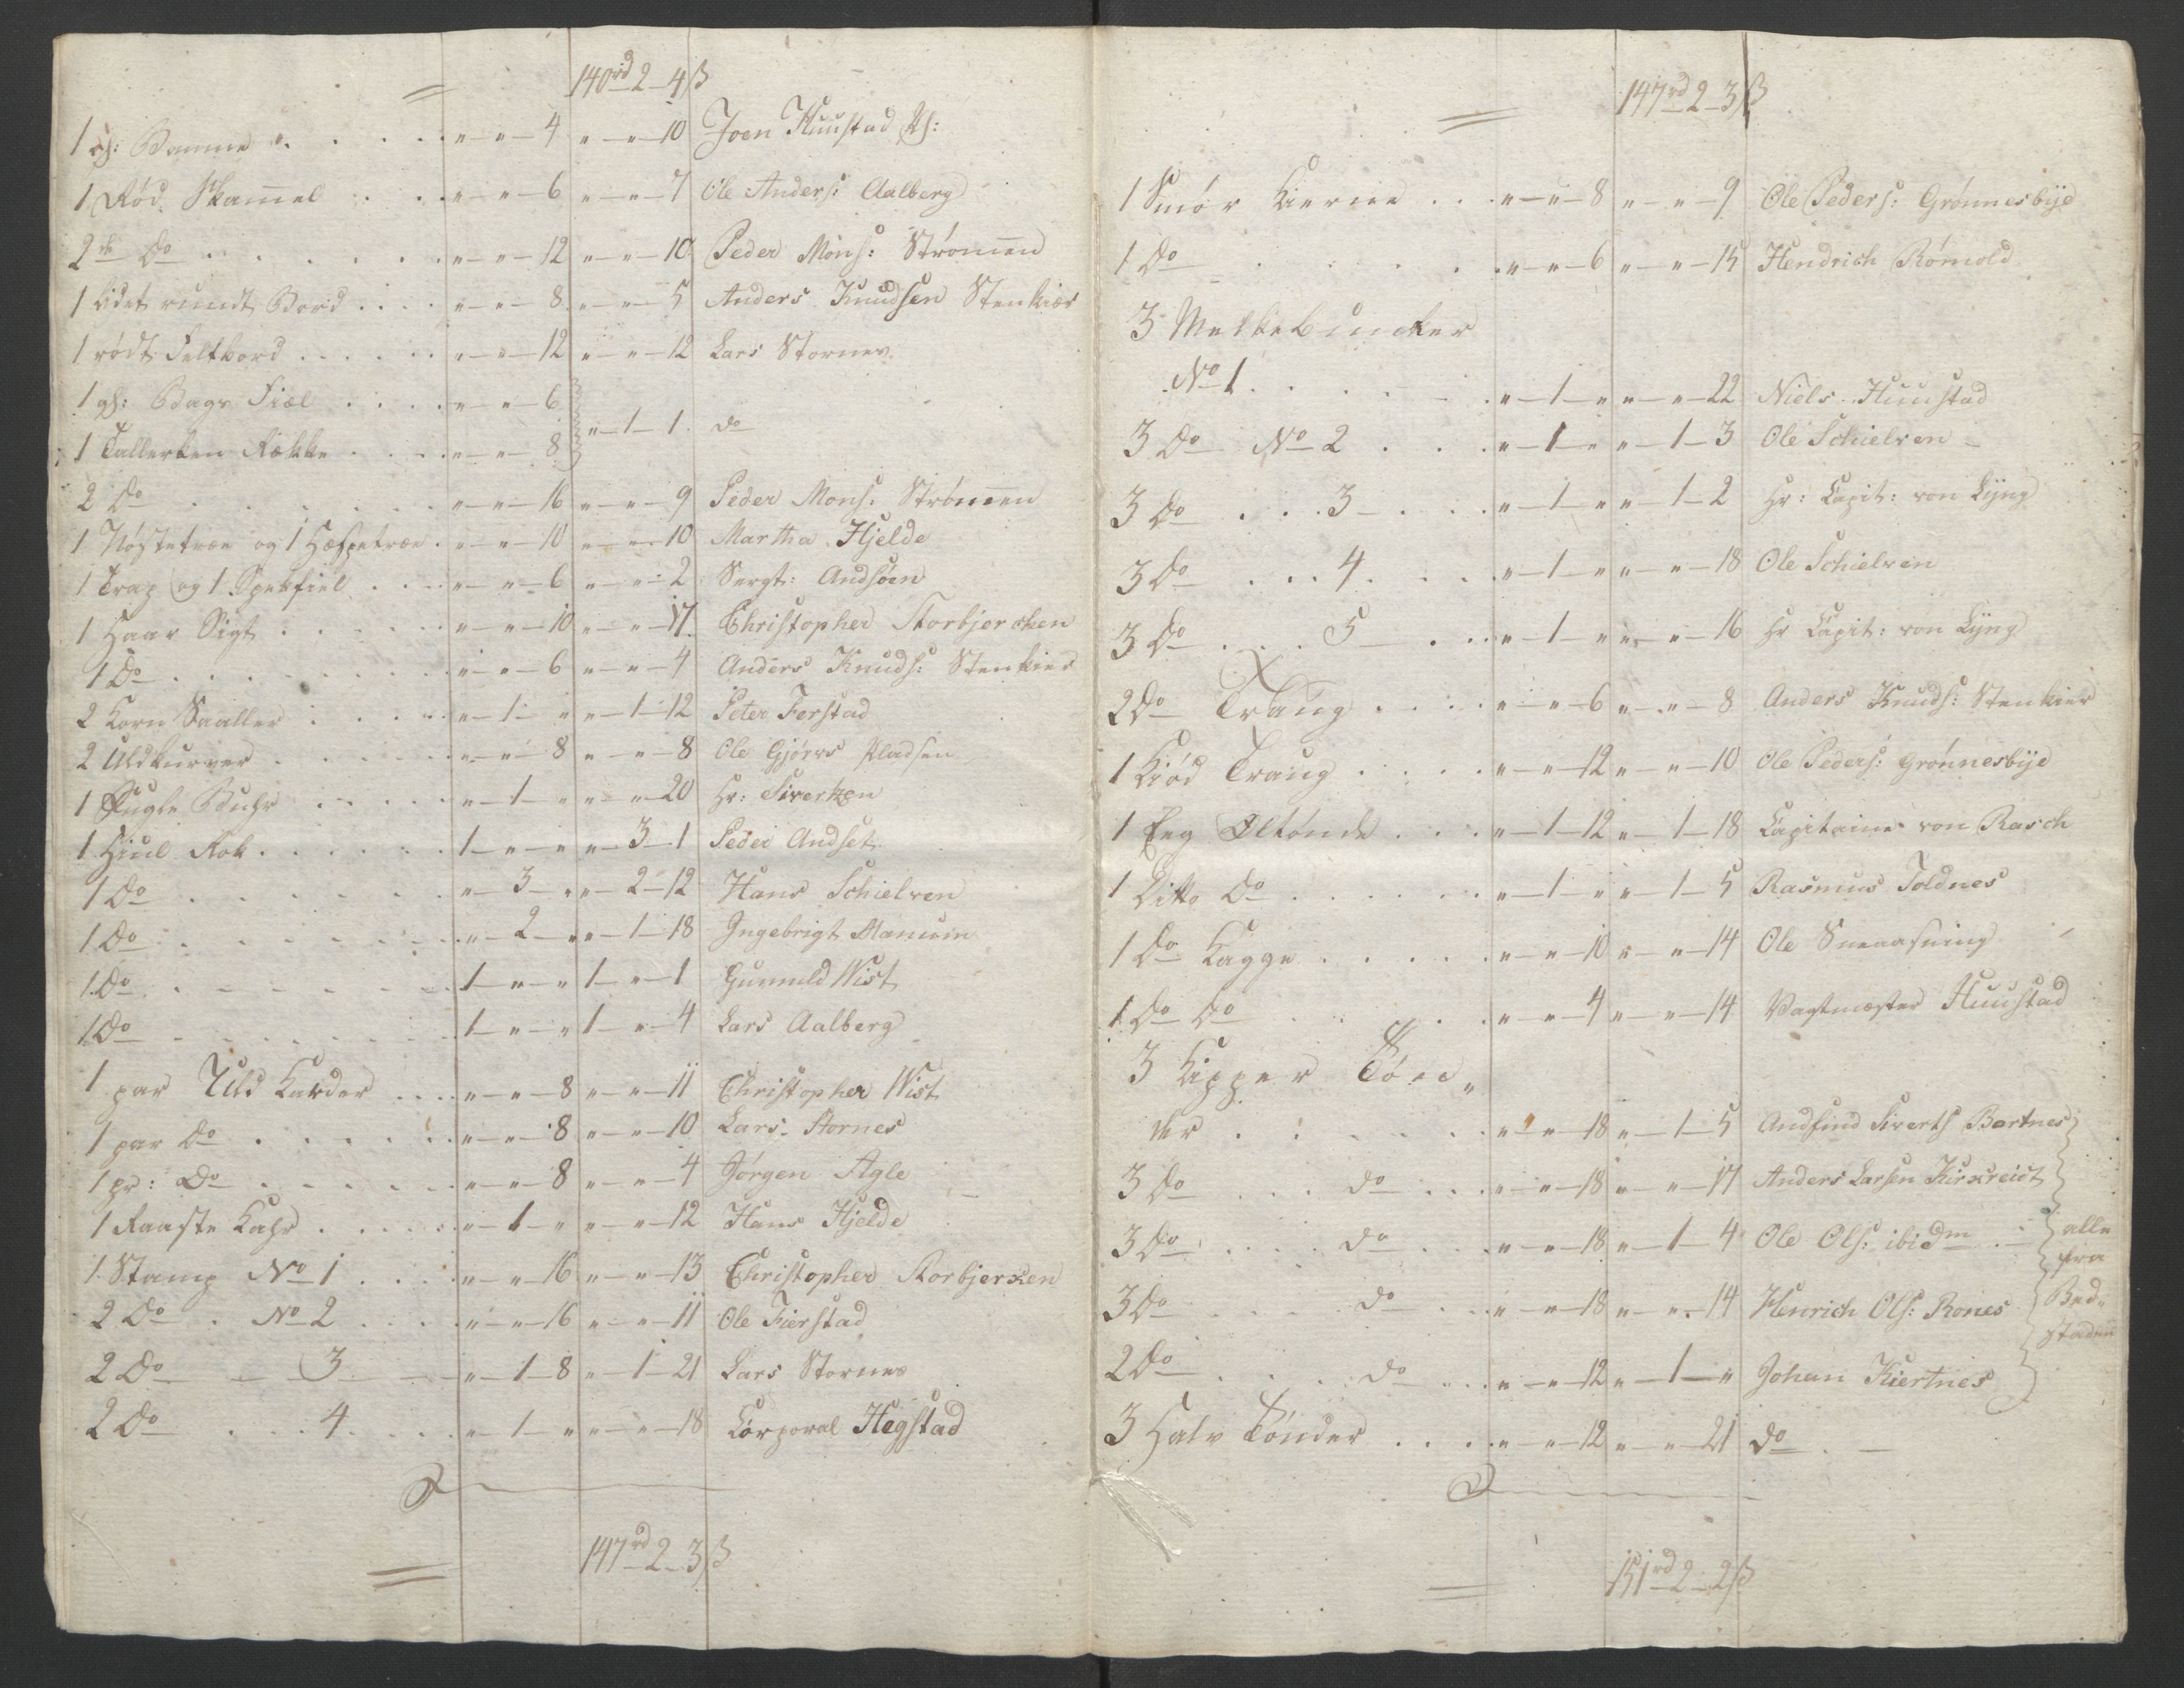 140rd 2 - 4 ß
1 gl: Panne . . . . " - " - 4 " - " - 10 Joen Huustad
1 Rød Skammel . . . " - " - 6 " - " - 7 Ole Anders: Aalberg
2de do . . . . . . " - " - 12 " - " - 10 Peder Mons: Strømmen
1 Lidet rundt Bord . . . . " - " - 8 " - " - 5 Anders Knudsen Stenkier
1 rødt Feltbord . . . . . . " - " - 12 " - " - 12 Lars Stornes
1 gl: Bage Fiæl . . . . " - " - 6
" - 1 - 1 do
1 Tallerken Række . . . . " - " - 8
2 do . . . . . . " - " - 16 " - " - 9 Peder Mons: Strømmen
1 Nøstetræe og 1 Hæspetræe . " - " - 10 " - " - 10 Martha Hjelde
1 Trap og 1 Spekfiel . . . " - " - 6 " - " - 2 Sergt: Andsøen
1 Haar Sigt . . . . . " - " - 10 " - " - 17 Christopher Storbjerchen
1 Do . . . . . . . " - " - 6 " - " - 4 Anders Knuds: Stenkier
2 Korn Saaller . . . . " - 1 - " " - 1 - 12 Peter Ferstad
2 Uldkurver . . . . . " - " - 8 " - " - 8 Ole Gjørvs Pladsen
1 Fugle Buhr . . . . . " - 1 - " " - " - 20 Hr: Sivertzen
1 Hiul Rok . . . . . . 1 - " - " " - 3 - 1 Peder Andset
1 Do . . . . . . " - 3 - " " - 2 - 12 Hans Schielven
1 Do . . . . . . " - 2 - " " - 1 - 18 Ingebrigt Mamuin
1 Do . . . . . . 1 - " - " 1 - " - 1 Gunnild Wist
1 Do . . . . . . 1 - " - " 1 - " - 4 Lars Aalberg
1 par Uld Karder . . . . " - " - 8 " - " - 11 Christopher Wist
1 par Do . . . . . . " - " - 8 " - " - 10 Lars Stornes
1 pr: Do . . . . . . " - " - 8 " - " - 4 Jørgen Agle
1 Raaste Kahr . . . . " - 1 - " " - " - 12 Hans Hjelde
1 Stamp No 1 . . . . " - " - 16 " - " - 13 Christopher Storbjerken
2 Do . No 2 . . . . " - " - 16 " - " - 11 Ole Fierstad
2 Do 3 " - 1 - 8 " - 1 - 21 Lars Stornes
2 Do . . . 4 . . . . " - 1 - " " - " - 18 Corporal Hegstad
147rd 2 - 3 ß
147rd 2 - 3 ß
1 Smør Kierne . . . " - " - 8 " - " - 9 Ole Peders: Grønnesbye
1 Do . . . . . " - " - 6 " - " - 15 Hendrich Rømold
3 Melkebuncker
No 1 . . . . . " - 1 - " " - " - 22 Niels Huustad
3 Do No 2 . . . " - 1 - " " - 1 - 3 Ole Schielven
3 Do . . . 3 . . . " - 1 - " " - 1 - 2 Hr: Capit: von Lyng
3 Do . . . 4 . . . " - 1 - " " - " - 18 Ole Schielven
3 Do . . . 5 . . . " - 1 - " " - " - 16 Hr Capit: von Lyng
2 Do Traug . . . . " - " - 6 " - " - 8 Anders Knuds: Stenkier
1 Kiød Traug . . . . " - " - 12 " - " - 10 Ole Peders: Grønnesbye
1 Eeg Øltønde . . . " - 1 - 12 " - 1 - 18 Capitaine von Rasch
1 Ditto Do . . . . . " - 1 - " " - 1 - 5 Rasmus Toldnes
1 Do Kagge . . . . . " - " - 10 " - " - 14 Ole Sneaasning
1 Do Do . . . . . " - " - 4 " - " - 14 Vagtmæster Huustad
3 Kipper Tøn„
der . . . . . " - " - 18 " - 1 - 5 Andfind Siverts Bartnes
3 Do . . . do . . . " - " - 18 " - " - 17 Anders Larsen Kirkreidt
3 Do . . . . do . . . " - " - 18 " - 1 - 4 Ole Ols: ibidm . alle
fra
3 Do . . . . do . . . " - " - 18 " - " - 14 Henrich Ols: Rones Bed„
staden
2 Do . . . . do . . . " - " - 12 " - 1 - " Johan Kiertnes
3 Halv Tønder . . . . " - " - 12 " - " - 21 do . -
151rd 2 - 2 ß